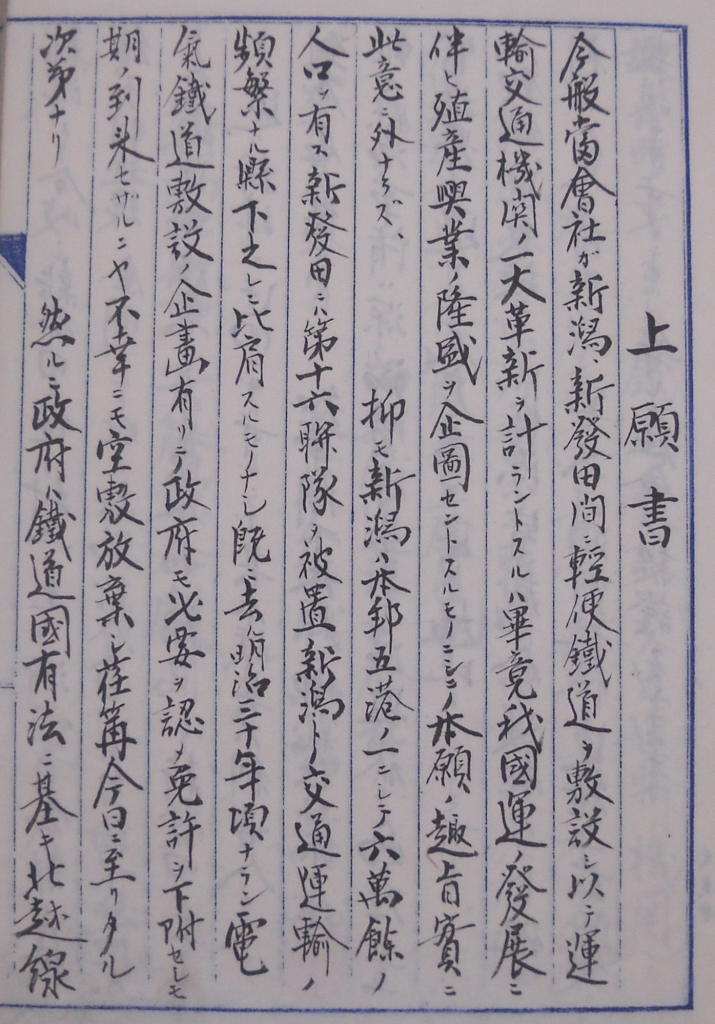 上願書
今般當會社ガ新潟、新發田間ニ輕便鐵道ヲ敷設シ以テ運
輸交通機関ノ一大革新ヲ計ラントスルハ畢竟我國運ノ發展ニ
伴ヒ殖産興業ノ隆盛ヲ企圖セントスルモノニシテ本願ノ趣旨實ニ
此意ニ外ナラズ、抑モ新潟ハ本邦五港ノ一ニシテ六萬餘ノ
人口ヲ有ス新發田ニハ第十六聯隊ヲ被置新潟トノ交通運輸ノ
頻繁ナル縣下之レニ比肩スルモノナシ既ニ去ル明治三十年頃ナラン電
氣鐵道敷設ノ企畫有リテ政府モ必要ヲ認メ免許ヲ下附セシモ
期ノ到来セザルニヤ不幸ニモ空敷放棄シ荏苒今日ニ至リタル
次第ナリ 然ルニ政府ハ鐵道國有法ニ基キ北越線